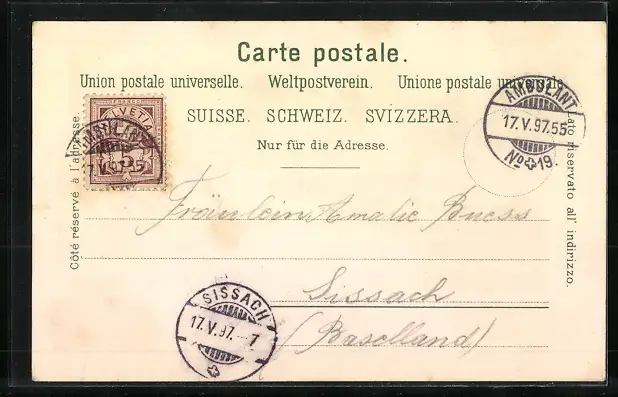 Carte postale.
Union postale universelle. Weltpostverein. Unione postale universale
SUISSE. SCHWEIZ. SVIZZERA.
Nur für die Adresse.
Côté réservé à l'adresse.
Lato riservato all' indirizzo.
FRANCO
HELVETIA
5
AMBULANT
17.V.97.55
AMBULANT
17.V.97.55
No 19.
Fräulein Amalie Buess
Sissach
(Baselland)
SISSACH
17.V.97.-7